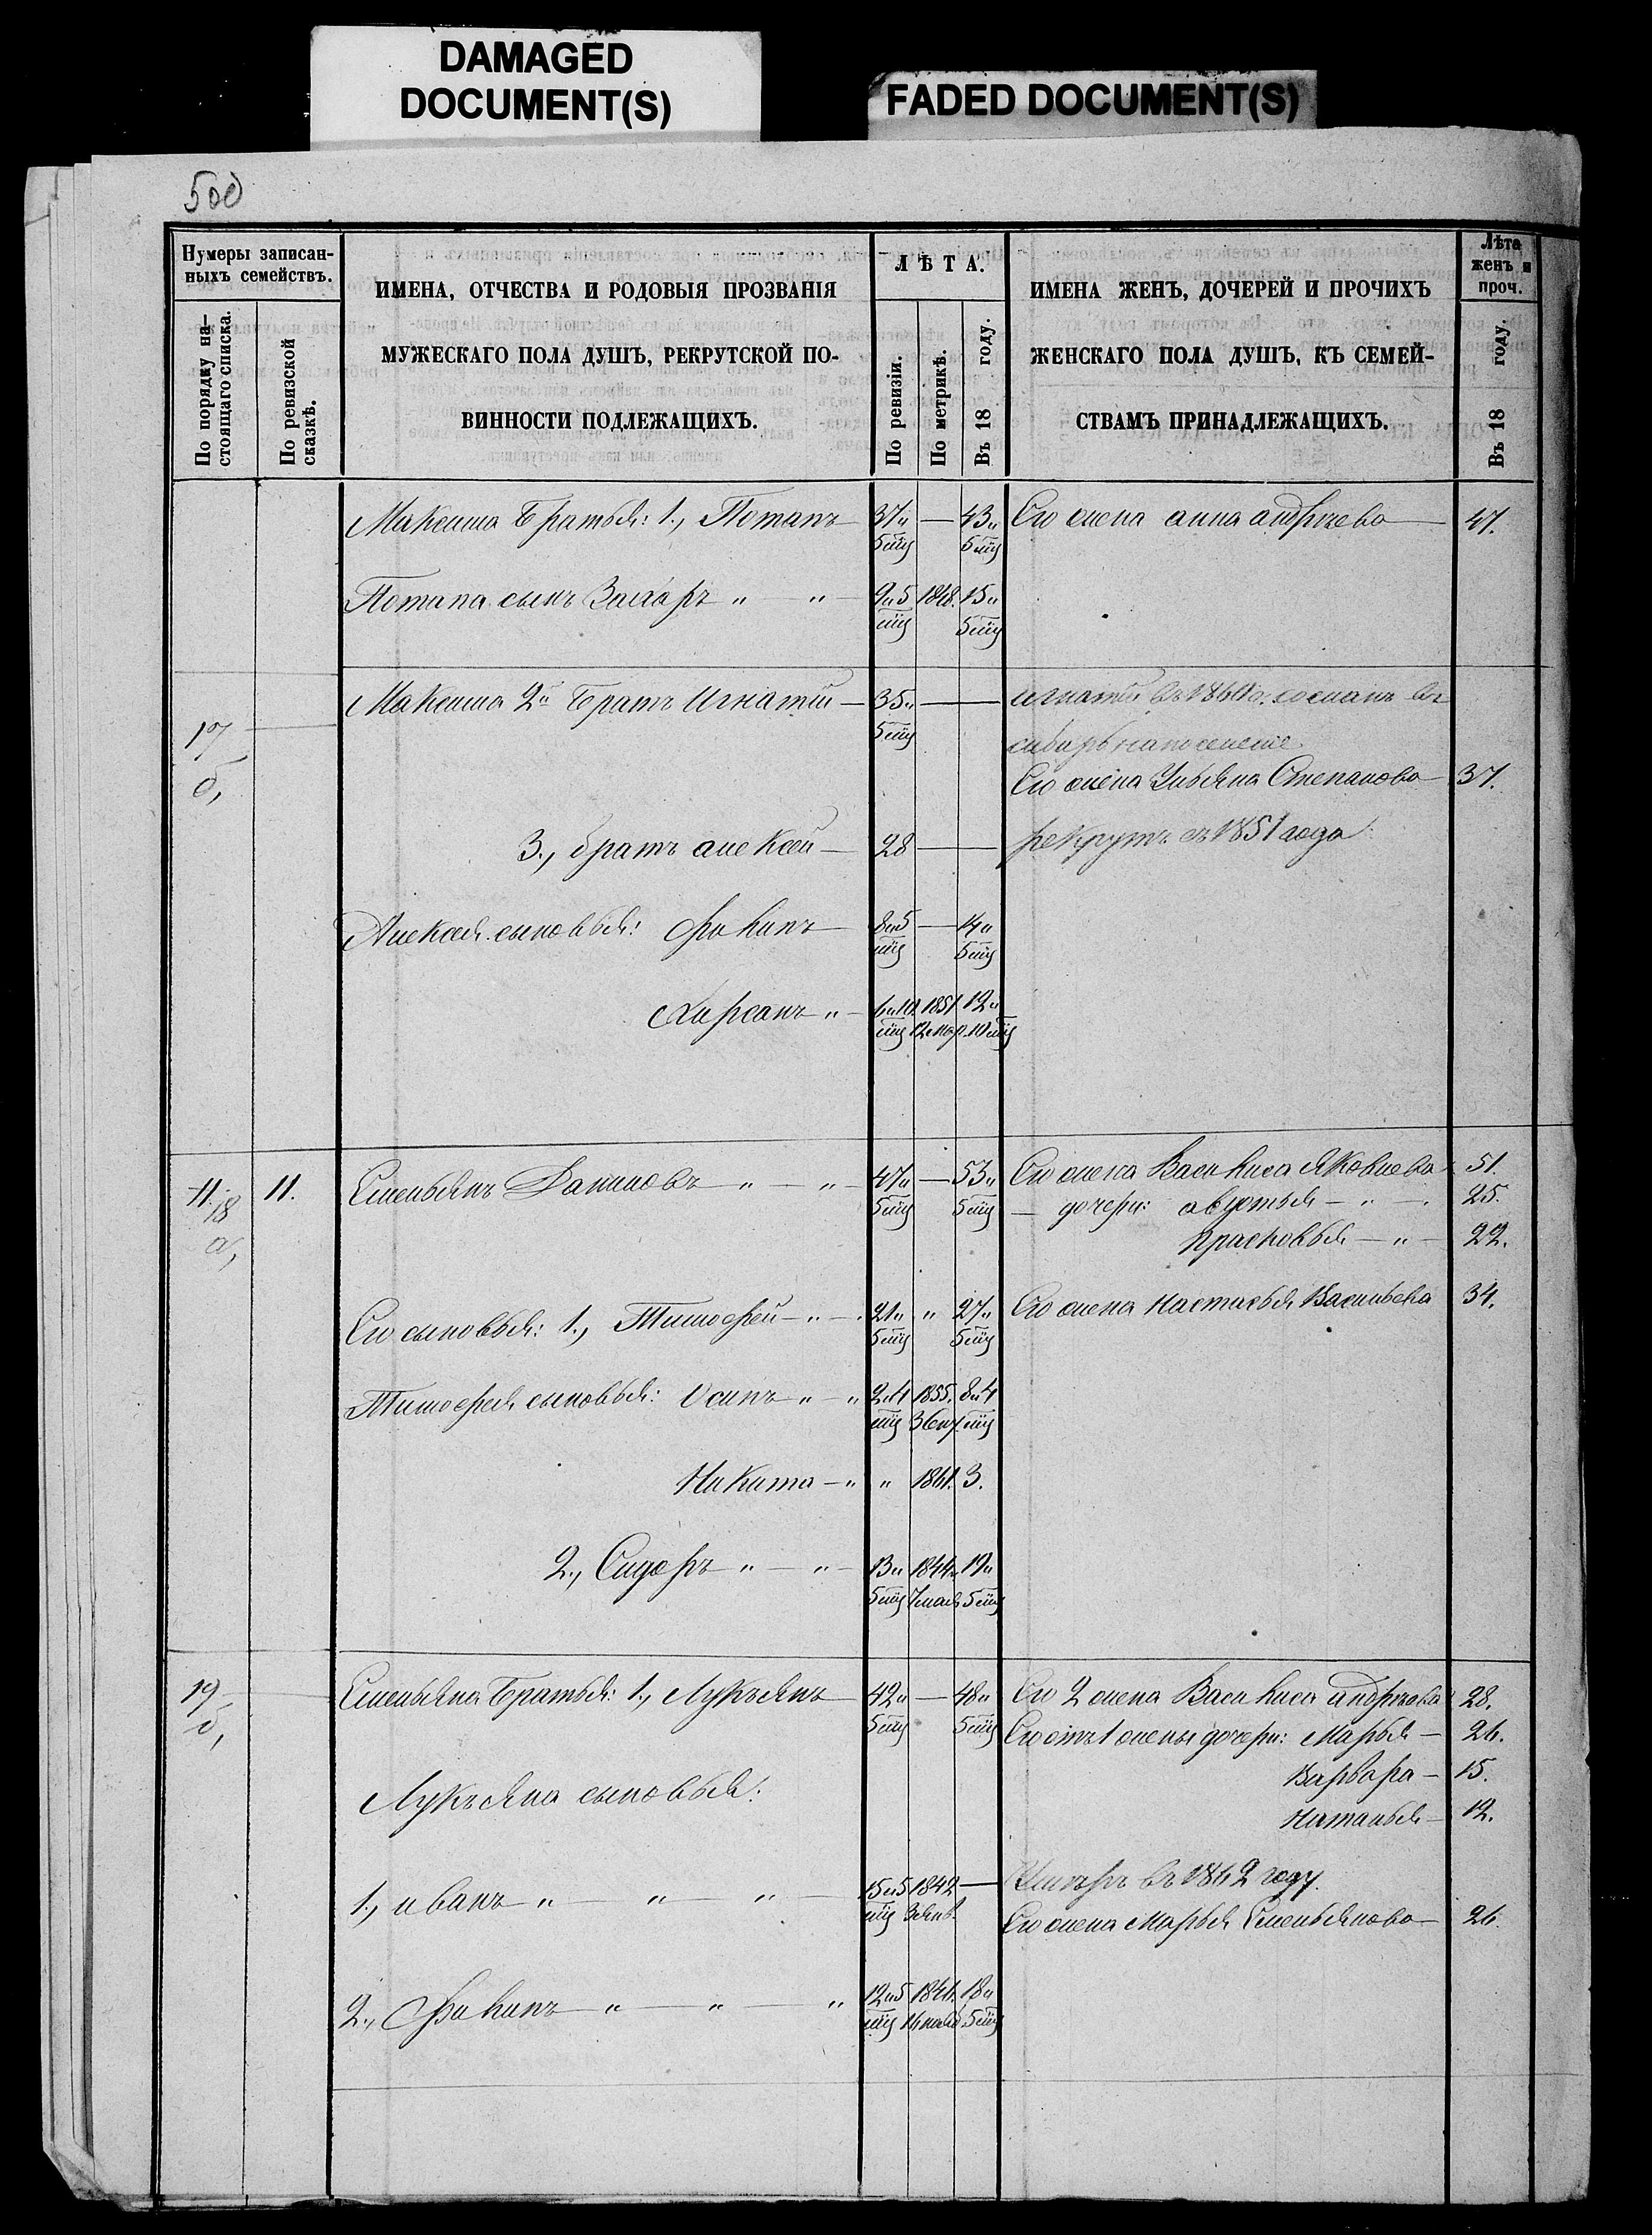 DAMAGED
DOCUMENT(S)
FADED DOCUMENT(S)
500
Нумеры записан-
ныхъ семействъ.
По порядку на-
стоящаго списка.
По ревизской
сказкѣ.
ИМЕНА, ОТЧЕСТВА И РОДОВЫЯ ПРОЗВАНІЯ
МУЖЕСКАГО ПОЛА ДУШЪ, РЕКРУТСКОЙ ПО-
ВИННОСТИ ПОДЛЕЖАЩИХЪ.
ЛѢТА.
По ревизіи.
По метрикѣ.
Въ 18 году.
ИМЕНА ЖЕНЪ, ДОЧЕРЕЙ И ПРОЧИХЪ
ЖЕНСКАГО ПОЛА ДУШЪ, КЪ СЕМЕЙ-
СТВАМЪ ПРИНАДЛЕЖАЩИХЪ.
Лѣта
женъ и
проч.
Въ 18 году.
Максима Братья: 1., Потапъ — 37 „ — 43 „ Его жена анна андрѣева — 47.
5 мѣц 5 мѣц
Потапа сынъ Захаръ „ — „ — 9 и 5 1848. 15 „
мѣц 5 мѣц
Максима 2й Братъ Игнатій — 35 „ — — игнатій въ 1860 г. сосланъ въ
17 5 мѣц сибирь на поселеніе
б, Его жена Ульяна Степанова — 37.
3., братъ алексѣй — 28 — — рекрутъ съ 1851 года
Алексѣя сыновья: Филипъ — 8 и 5 — 14 „
мѣц 5 мѣц
Хирсанъ „ — 6 и 10 1851 12 „
мѣц 10 мѣц
11. 18 а, 11. Емельянъ Даниловъ „ — „ — 47 „ — 53 „ Его жена Василиса Яковлева 51.
5 мѣц 5 мѣц — дочери: авдотья — „ — 25.
Прасковья — „ — 22.
Его сыновья: 1., Тимофей — „ — 21 „ „ 27 „ Его жена Настасья Васильева 34.
5 мѣц 5 мѣц
Тимофея сыновья: Осипъ „ — „ 2 и 4 1855. 8 и 4
мѣц мѣц
Никита — „ „ 1861. 3.
2., Сидоръ „ — „ — 13 „ 1844. 19 „
5 мѣц 7 мая 5 мѣц
19 б, Емельяна Братья: 1., Лукьянъ — 42 „ — 48 „ Его 2 жена Василиса андрѣева 28.
5 мѣц 5 мѣц Его отъ 1 жены дочери: Марья — 26.
Варвара — 15.
Лукьяна сыновья:
Наталья — 12.
1., иванъ „ „ — „ — 15 и 5 1842 — Умеръ въ 1862 году.
мѣц 3 янв. Его жена Марья Емельянова — 26.
2., Филипъ — „ — „ — „ 12 и 5 1844. 18 „
мѣц 5 мѣц